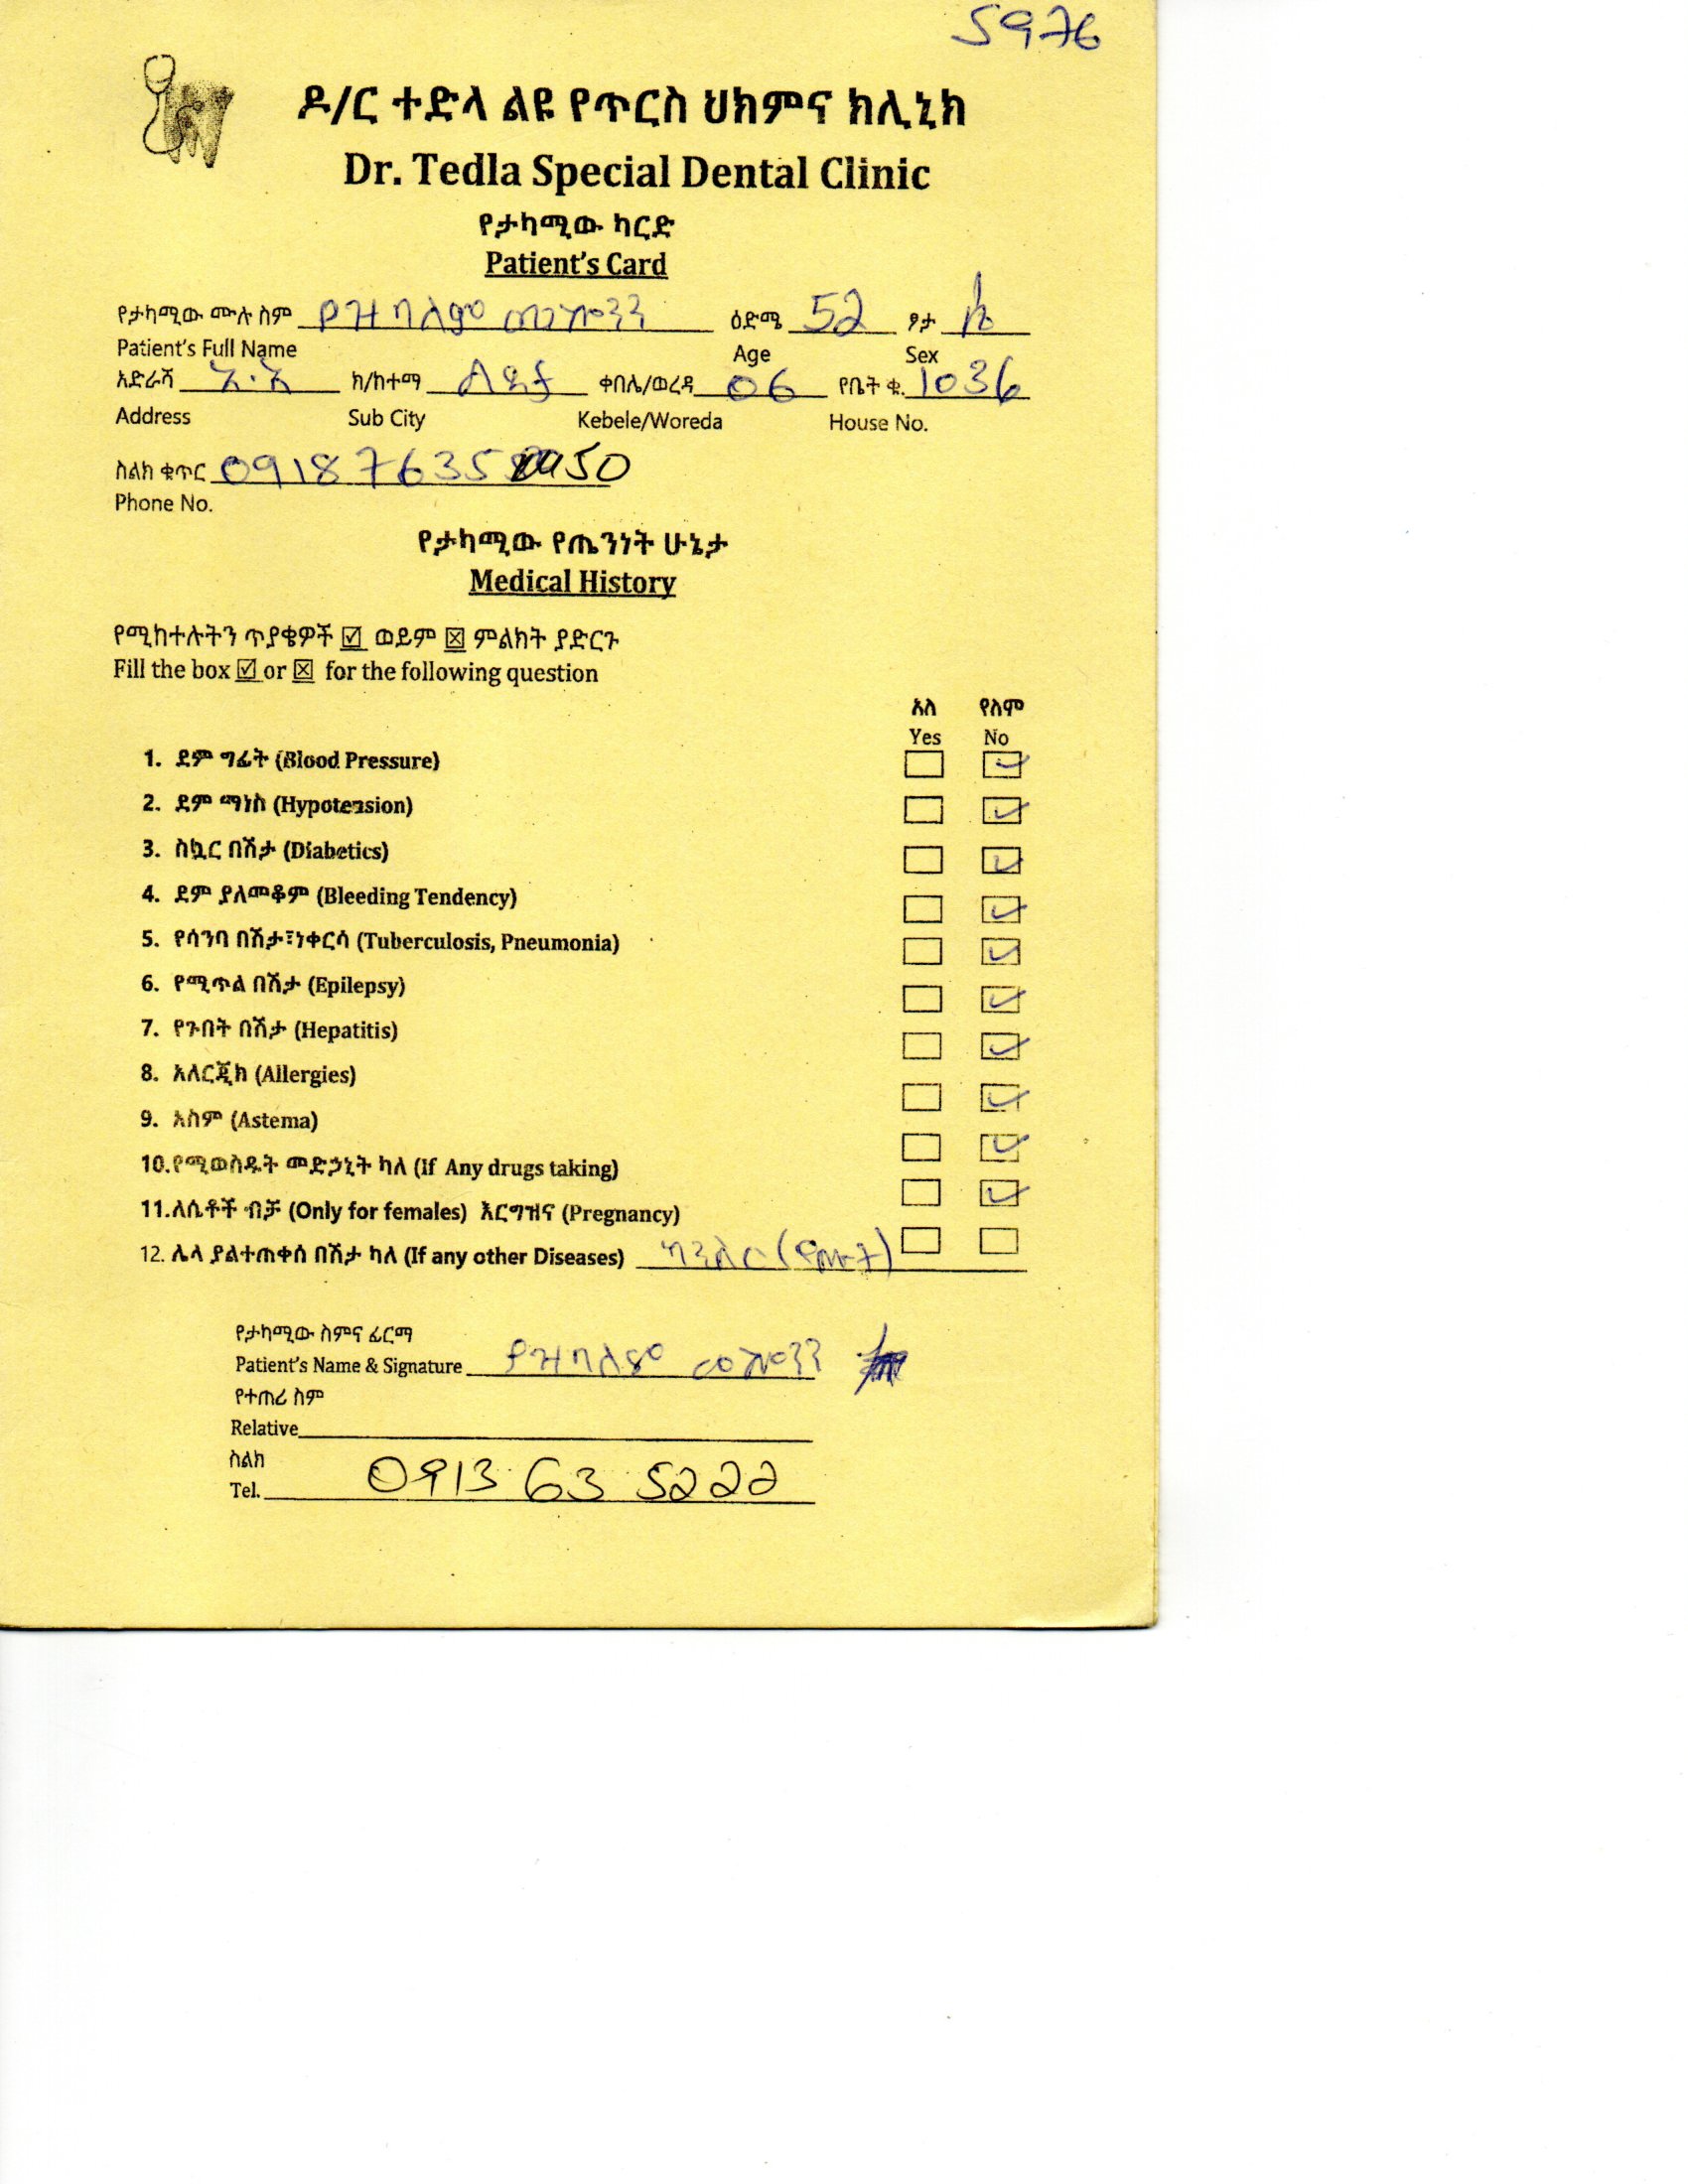 5976
ዶ/ር ተድላ ልዩ የጥርስ ህክምና ክሊኒክ
Dr. Tedla Special Dental Clinic
የታካሚው ካርድ
Patient's Card
የታካሚው ሙሉ ስም የዝባለም መኮንን ዕድሜ 52 ፆታ ሴ
Patient's Full Name Age Sex
አድራሻ አ.አ ክ/ከተማ ልደታ ቀበሌ/ወረዳ 06 የቤት ቁ. 1036
Address Sub City Kebele/Woreda House No.
ስልክ ቁጥር
Phone No.
የታካሚው የጤንነት ሁኔታ
Medical History
የሚከተሉትን ጥያቄዎች ☑ ወይም ☒ ምልክት ያድርጉ
Fill the box ☑ or ☒ for the following question
አለ የለም
Yes No
1. ደም ግፊት (Blood Pressure)
2. ደም ማነስ (Hypotension)
3. ስኳር በሽታ (Diabetics)
4. ደም ያለመቆም (Bleeding Tendency)
5. የሳንባ በሽታ፣ነቀርሳ (Tuberculosis, Pneumonia)
6. የሚጥል በሽታ (Epilepsy)
7. የጉበት በሽታ (Hepatitis)
8. አለርጂክ (Allergies)
9. አስም (Astema)
10.የሚወስዱት መድኃኒት ካለ (If Any drugs taking)
11.ለሴቶች ብቻ (Only for females) እርግዝና (Pregnancy)
12. ሌላ ያልተጠቀሰ በሽታ ካለ (If any other Diseases) ካንሰር
የታካሚው ስምና ፊርማ
Patient's Name & Signature የዝባለም መኮንን
የተጠሪ ስም
Relative
ስልክ
Tel. 0913 63 5222